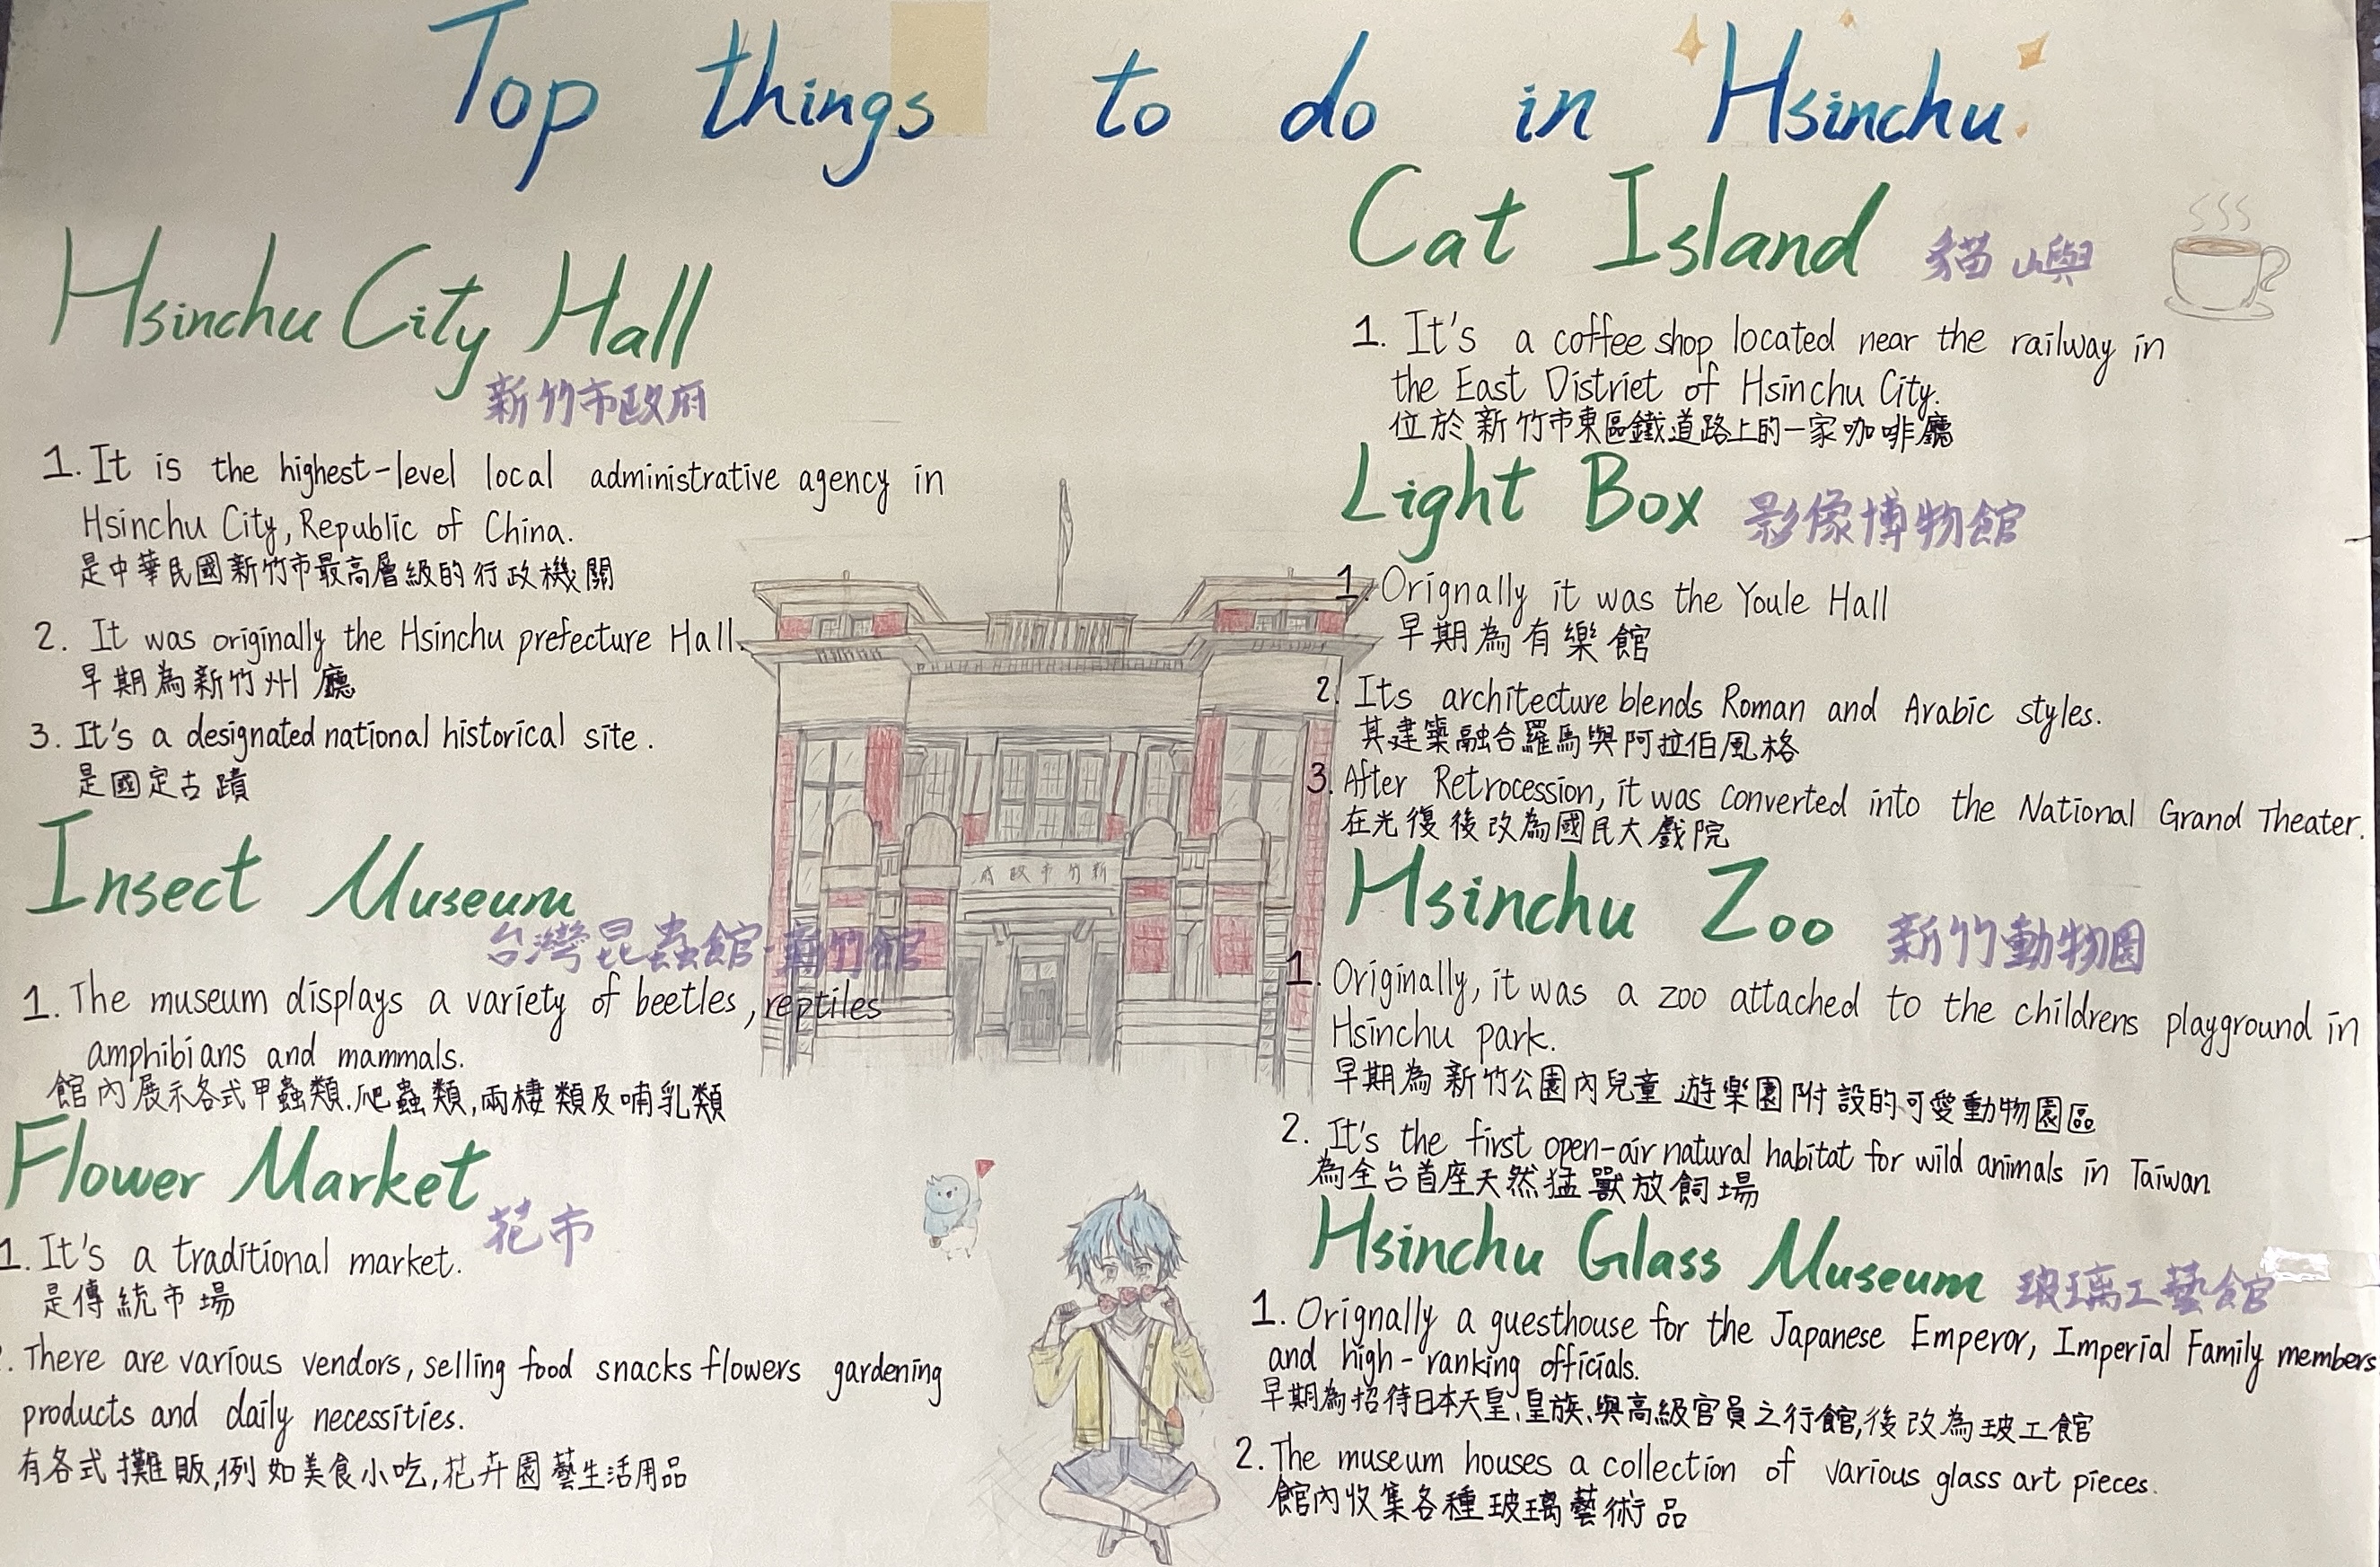 Top things to do in Hsinchu
Hsinchu City Hall
新竹市政府
1. It is the highest-level local administrative agency in
Hsinchu City, Republic of China.
是中華民國新竹市最高層級的行政機關
2. It was originally the Hsinchu prefecture Hall.
早期為新竹州廳
3. It's a designated national historical site.
是國定古蹟
Insect Museum
台灣昆蟲館-新竹館
1. The museum displays a variety of beetles, reptiles
amphibians and mammals.
館內展示各式甲蟲類.爬蟲類,兩棲類及哺乳類
Flower Market
花市
1. It's a traditional market.
是傳統市場
. There are various vendors, selling food snacks flowers gardening
products and daily necessities.
有各式攤販,例如美食小吃,花卉園藝生活用品
府政市竹新
Cat Island
貓嶼
1. It's a coffee shop located near the railway in
the East District of Hsinchu City.
位於新竹市東區鐵道路上的一家咖啡廳
Light Box
影像博物館
1. Orignally it was the Youle Hall
早期為有樂館
2. Its architecture blends Roman and Arabic styles.
其建築融合羅馬與阿拉伯風格
3. After Retrocession, it was converted into the National Grand Theater.
在光復後改為國民大戲院
Hsinchu Zoo
新竹動物園
1. Originally, it was a zoo attached to the childrens playground in
Hsinchu park.
早期為新竹公園內兒童遊樂園附設的可愛動物園區
2. It's the first open-air natural habitat for wild animals in Taiwan
為全台首座天然猛獸放飼場
Hsinchu Glass Museum
玻璃工藝館
1. Orignally a guesthouse for the Japanese Emperor, Imperial Family members
and high-ranking officials.
早期為招待日本天皇、皇族、與高級官員之行館,後改為玻工館
2. The museum houses a collection of various glass art pieces.
館內收集各種玻璃藝術品